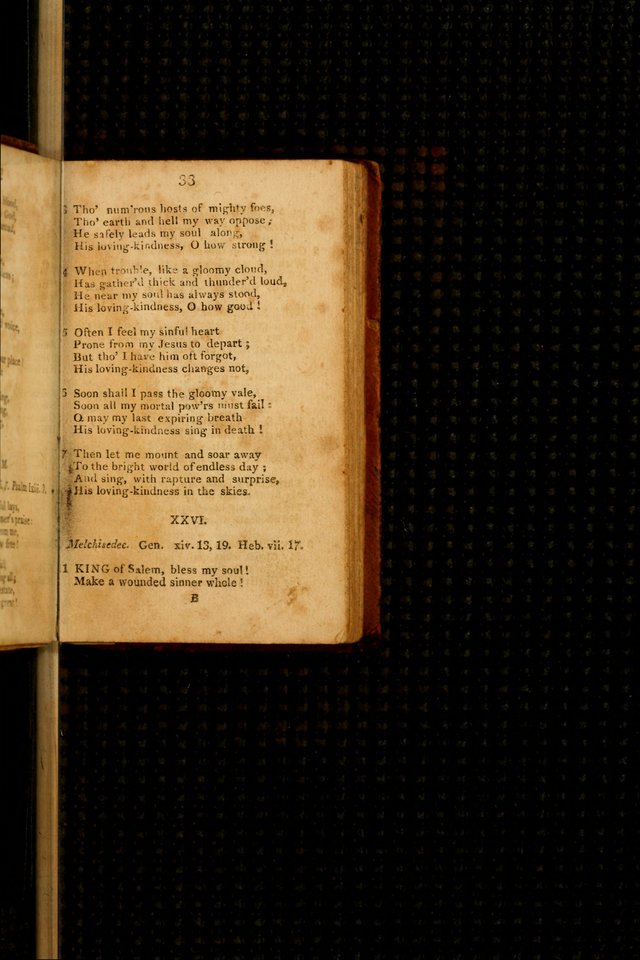 Blood,
God,
voice,
place
M.
Psalm lxiii. 3.
lays,
praise:
free!
all;
33
3 Tho' num'rous hosts of mighty foes,
Tho' earth and hell my way oppose;
He safely leads my soul along,
His loving-kindness, O how strong!
4 When trouble, like a gloomy cloud,
Has gather'd thick and thunder'd loud,
He near my soul has always stood,
His loving-kindness, O how good!
5 Often I feel my sinful heart
Prone from my Jesus to depart;
But tho' I have him oft forgot,
His loving-kindness changes not,
6 Soon shall I pass the gloomy vale,
Soon all my mortal pow'rs must fail:
O may my last expiring breath
His loving-kindness sing in death!
7 Then let me mount and soar away
To the bright world of endless day;
And sing, with rapture and surprise,
His loving-kindness in the skies.
XXVI.
Melchisedec. Gen. xiv. 13, 19. Heb. vii. 17.
1 KING of Salem, bless my soul!
Make a wounded sinner whole!
B